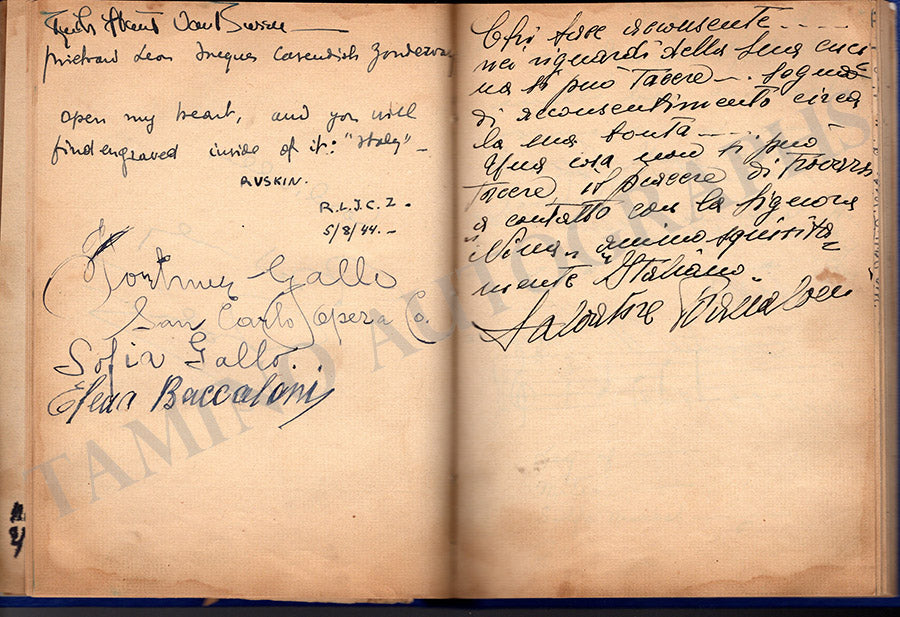 Van Buren
Leon Jacques Cavendish
open my heart, and you will
find engraved inside of it: "Italy" -
RUSKIN.
R.L.J.C.Z. -
5/8/44. -
Fortune Gallo
San Carlo Opera Co.
Sofia Gallo.
Elena Baccaloni
Chi tace acconsente ....
nei riguardi della sua cuci=
na si può tacere ... segno
di acconsentimento circa
la sua bontà
Una cosa non si può
tacere, il piacere di trovarsi
a contatto con la Signora
Nina, animo squisita=
mente Italiano.
Salvatore Baccaloni
TAMINO AUTOGRAPHS